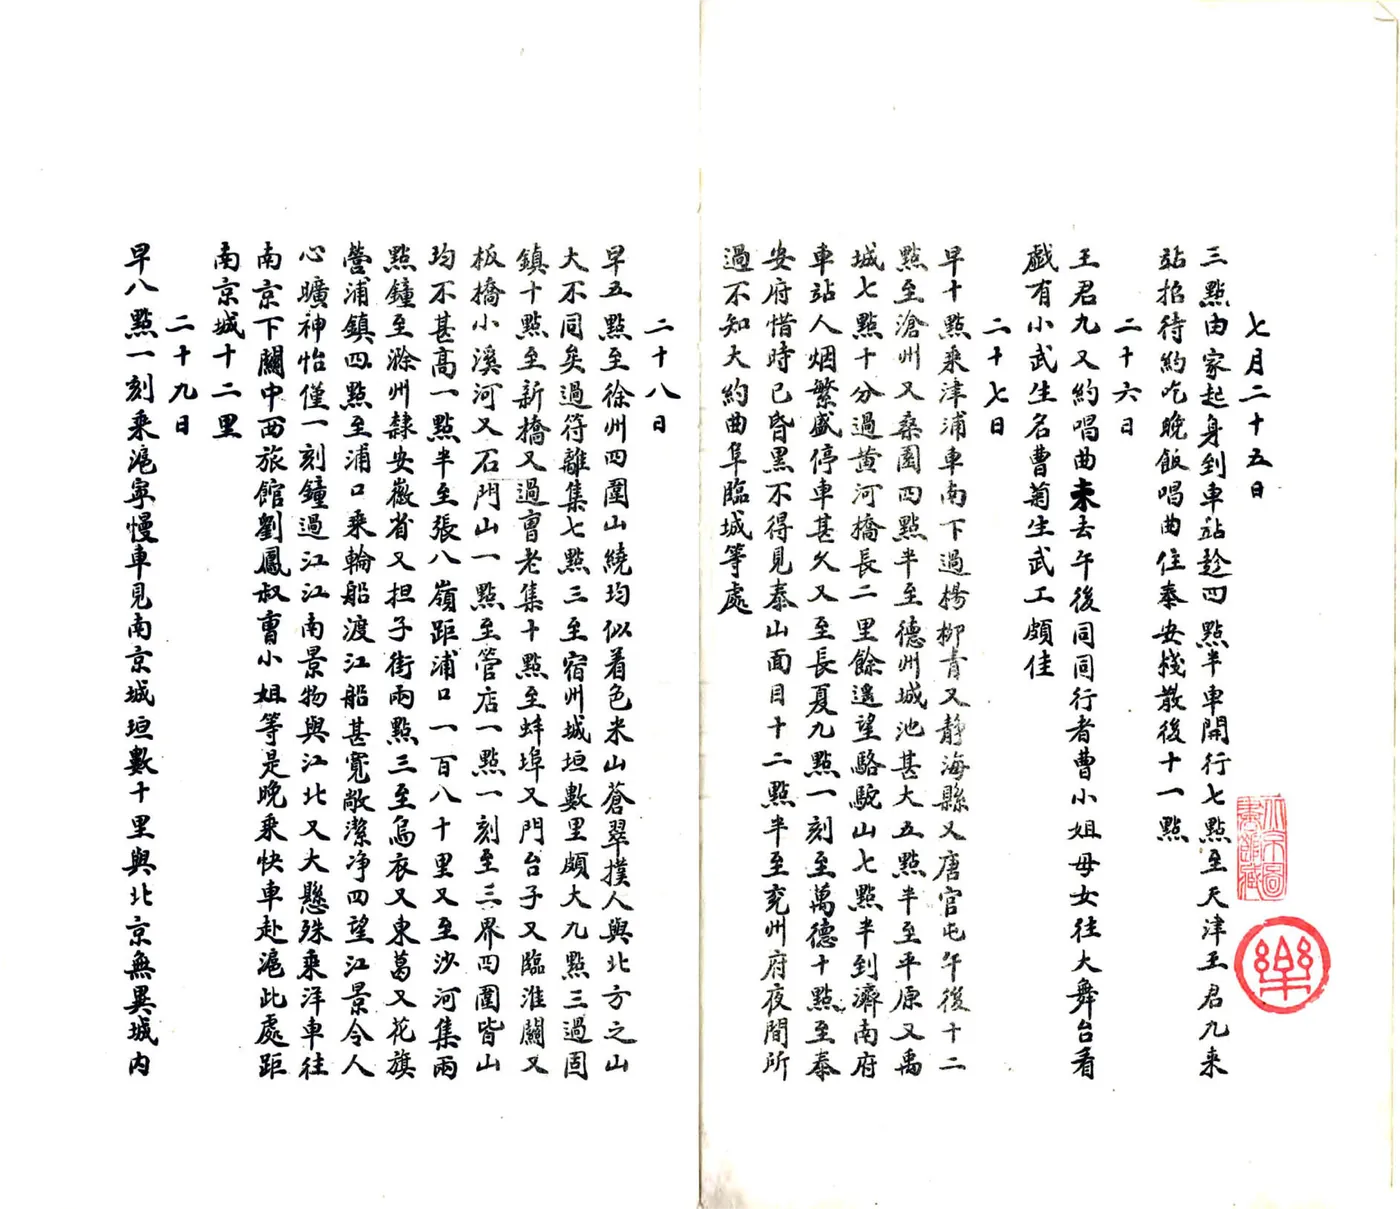 七月二十五日
三點由家起身到車站趁四點半車開行七點至天津王君九來
站招待約吃晚飯唱曲住泰安棧散後十一點
二十六日
王君九又約唱曲未去午後同同行者曹小姐母女往大舞台看
戲有小武生名曹菊生武工頗佳
二十七日
早十點乘津浦車南下過楊柳青又靜海縣又唐官屯午後十二
點至滄州又桑園四點半至德州城池甚大五點半至平原又禹
城七點十分過黃河橋長二里餘遙望駱駝山七點半到濟南府
車站人烟繁盛停車甚久又至長夏九點一刻至萬德十點至泰
安府惜時已昏黑不得見泰山面目十二點半至兗州府夜間所
過不知大約曲阜臨城等處
二十八日
早五點至徐州四圍山繞均似着色米山蒼翠撲人與北方之山
大不同矣過符離集七點三至宿州城垣數里頗大九點三過固
鎮十點至新橋又過曹老集十點至蚌埠又門台子又臨淮關又
板橋小溪河又石門山一點至管店一點一刻至三界四圍皆山
均不甚高一點半至張八嶺距浦口一百八十里又至沙河集兩
點鐘至滁州隸安徽省又担子街兩點三至烏衣又東葛又花旗
營浦鎮四點至浦口乘輪船渡江船甚寬敞潔净四望江景令人
心曠神怡僅一刻鐘過江江南景物與江北又大懸殊乘洋車往
南京下關中西旅館劉鳳叔曹小姐等是晚乘快車赴滬此處距
南京城十二里
二十九日
早八點一刻乘滬寧慢車見南京城垣數十里與北京無異城内
樂